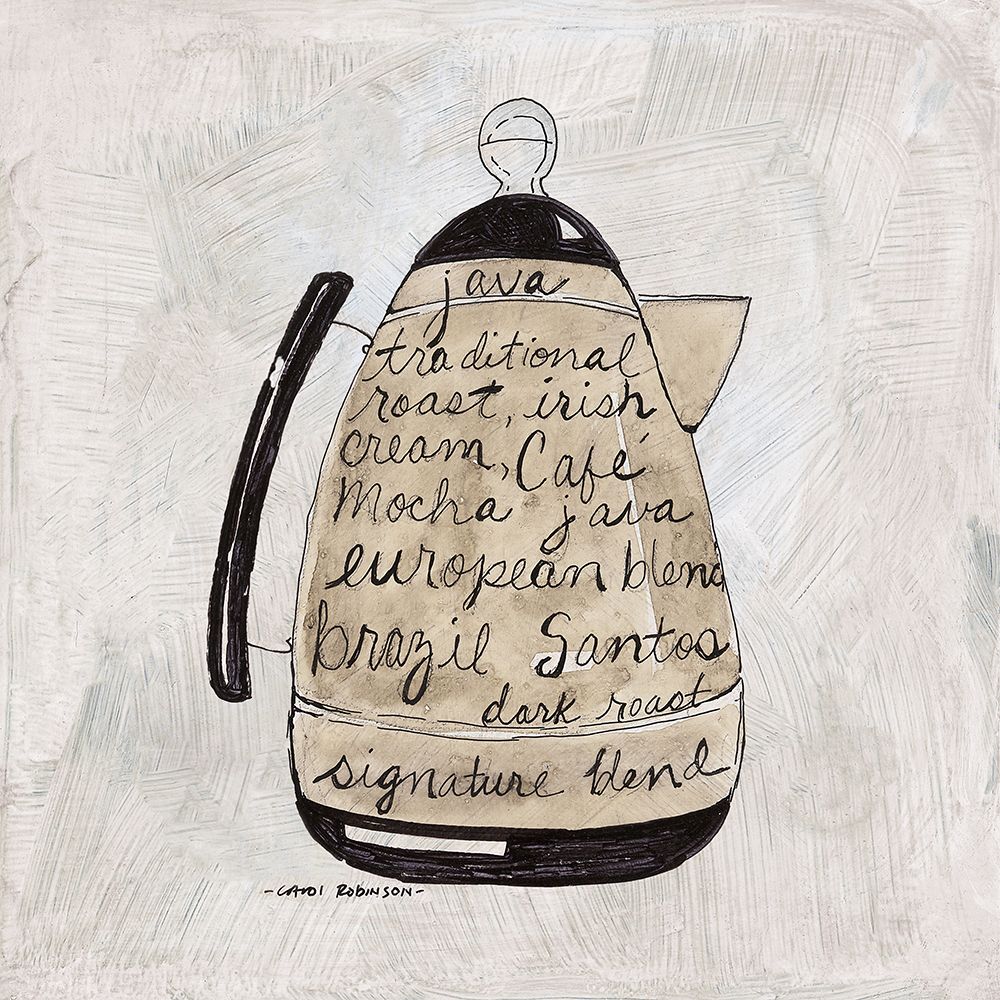 java
traditional
roast, irish
cream, Café
Mocha java
european blend
brazil Santos
dark roast
signature blend
- CAROL ROBINSON -